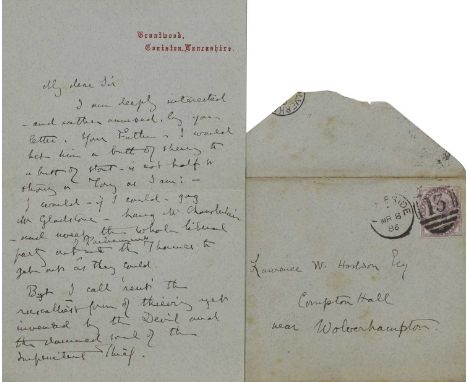 Brantwood,
Coniston, Lancashire.
My dear Sir
I am deeply interested
- and rather amused, by your
letter. Your Father - I would
bet him a butt of sherry to
a butt of stout - is not half so
strong a Tory as I am: -
I would - if I could - gag
Mr Gladstone - hang Mr Chamberlain
- and the whole liberal
party out of Parliament into the Thames to
get out as they could.
But I call rents the
rascalliest form of thieving yet
invented by the Devil and
the damned soul of the
impenitent Thief.
MR 8
86
13
Lawrence W. Hodson Esq
Compton Hall
near Wolverhampton.